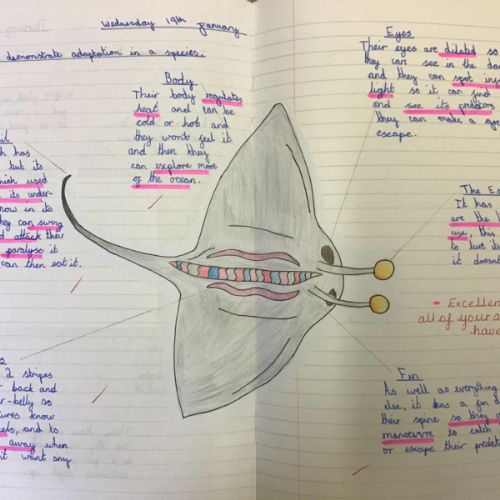 Wednesday 19th January
demonstrate adaptation in a species.
Body
Their body regulates
heat and can be
cold or hot and
they won't feel it
and then they
can explore more
of the ocean.
Eyes
Their eyes are dilated so
they can see in the
and they can spot
light so it can find
and see its predators
they can make a
escape.
has
but its
which used
its under-
now in its
they can swing
attack their
paralyse it
can then eat it.
The
It has
are the
use this
to lure it
it doesn't
• Excellent
all of your
have
2 stripes
back and
-belly so
know
and to
away when
want any
Fin
As well as everything
else, it has a fin
their spine so they
manoeuvre to catch
or escape their